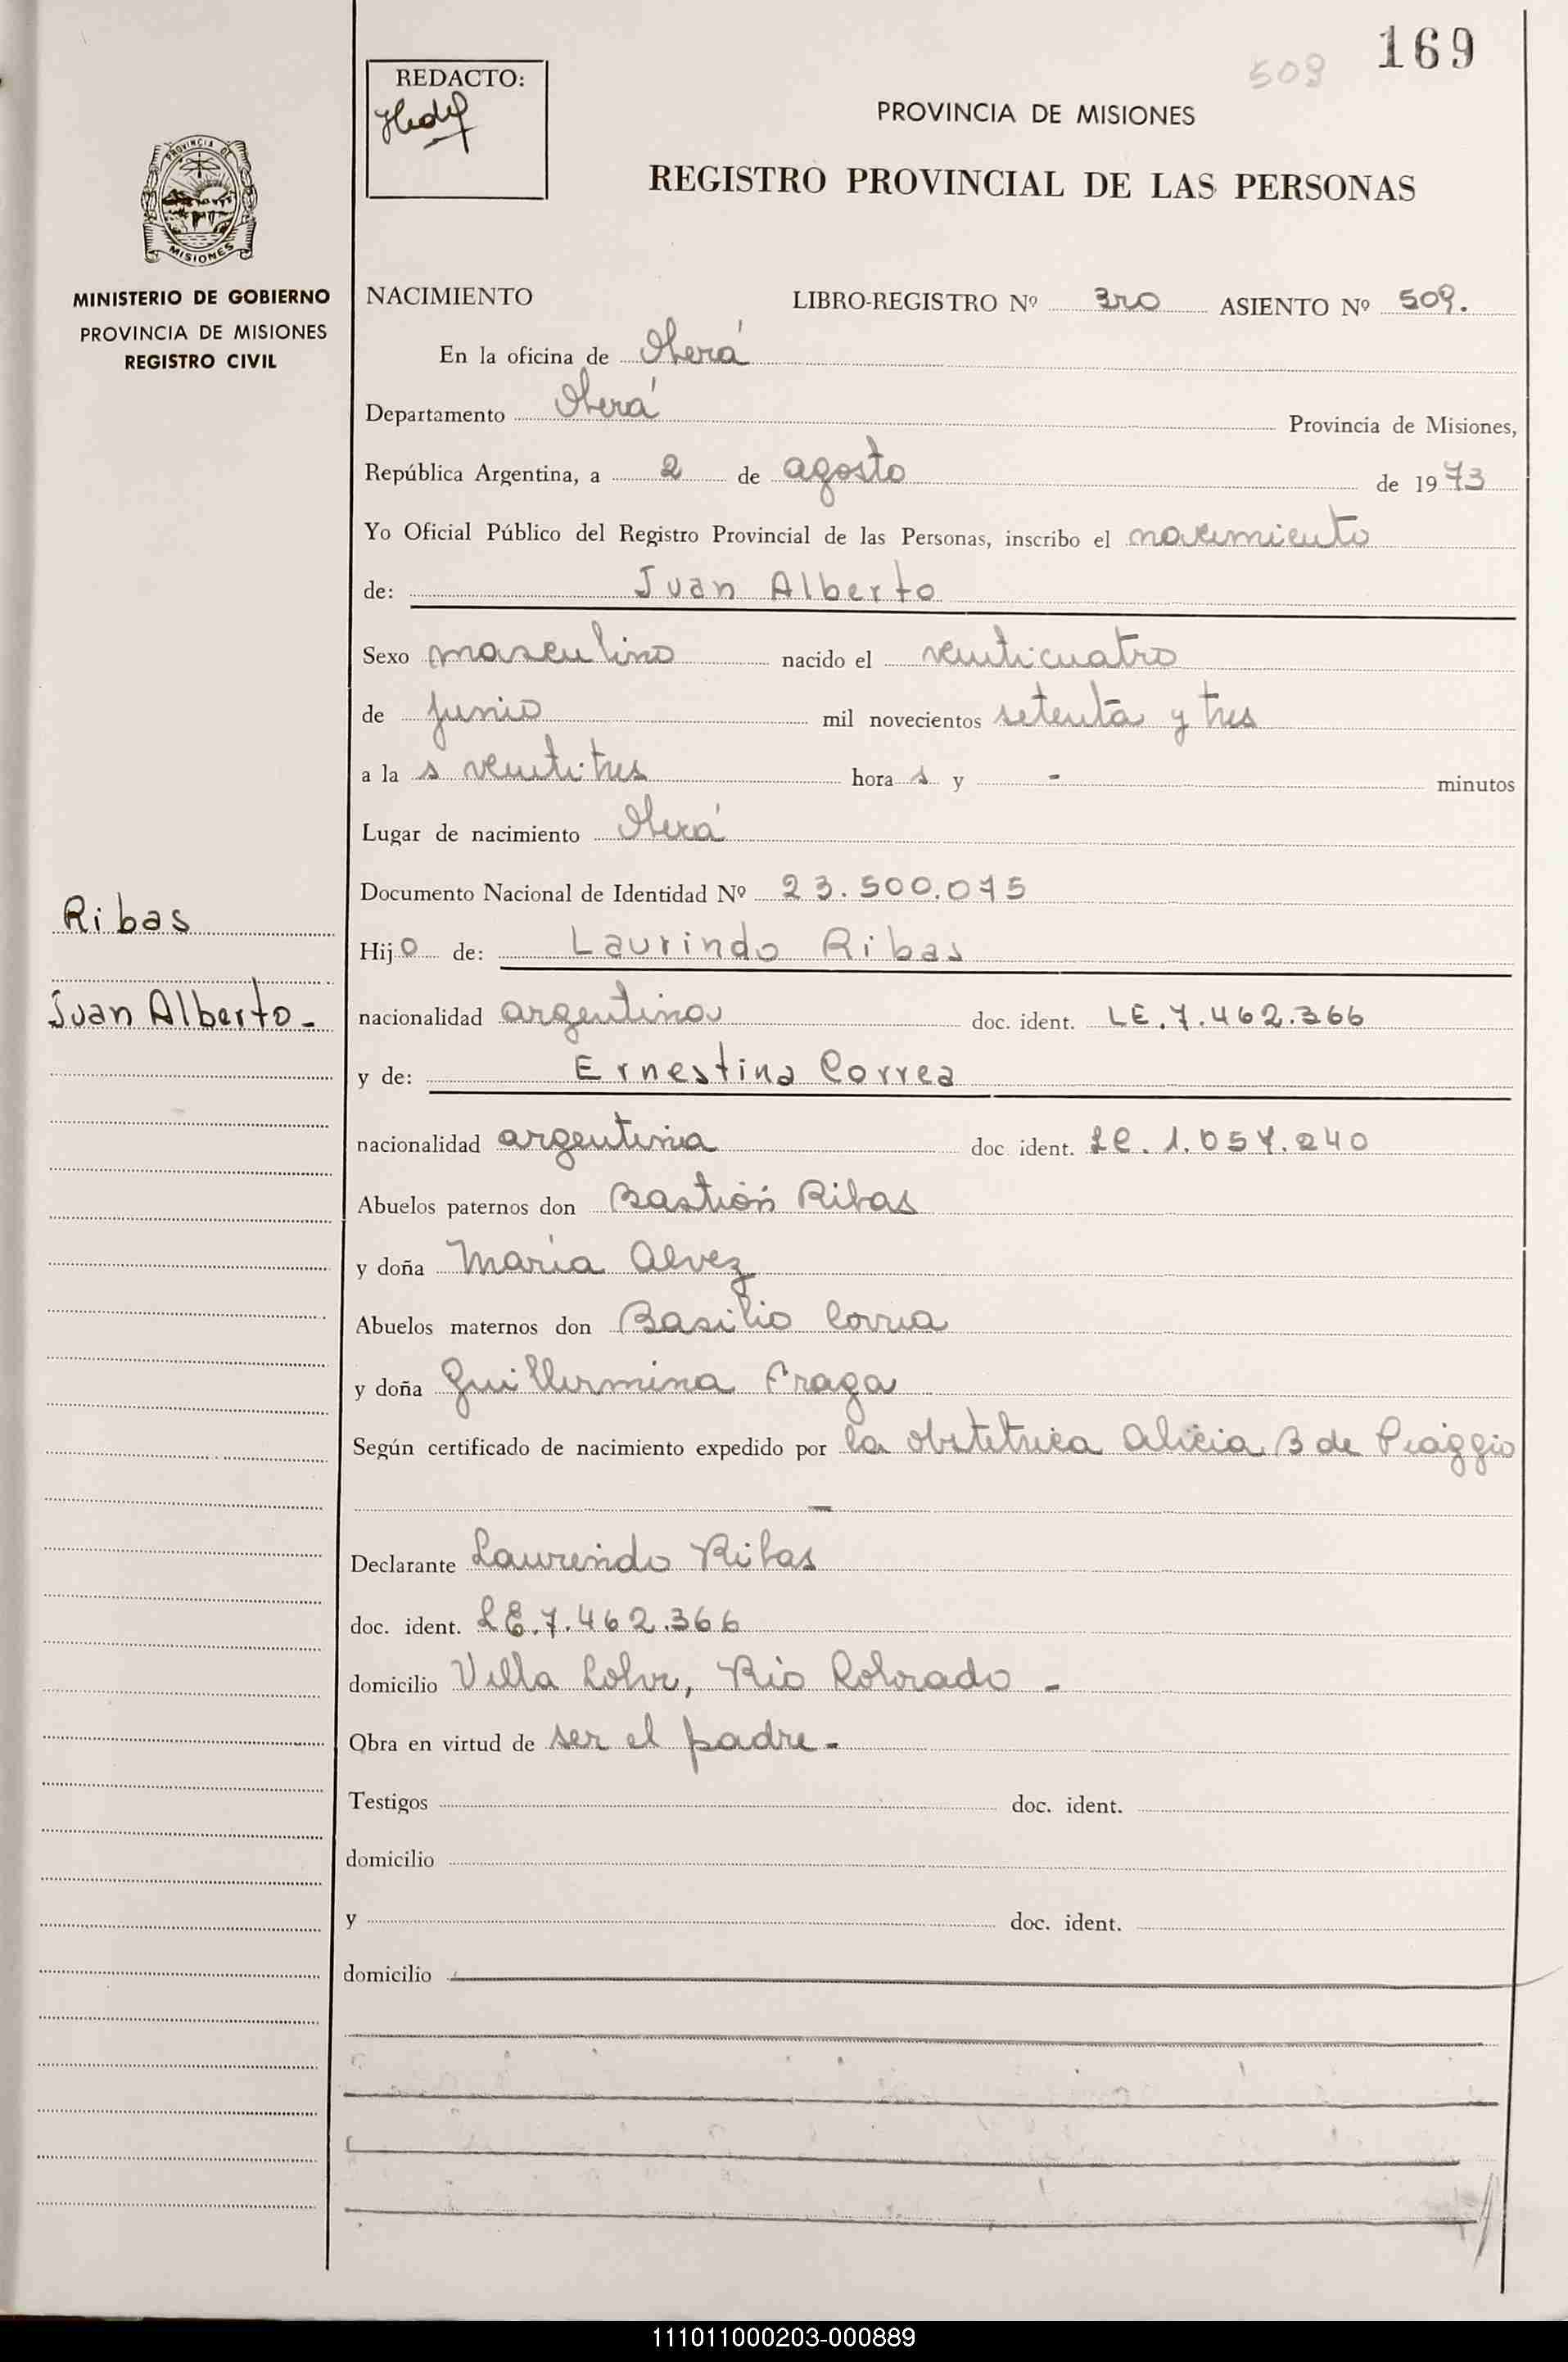 169
509
REDACTO:
PROVINCIA DE MISIONES
REGISTRO PROVINCIAL DE LAS PERSONAS
PROVINCIA DE
MISIONES
MINISTERIO DE GOBIERNO
PROVINCIA DE MISIONES
REGISTRO CIVIL
NACIMIENTO LIBRO-REGISTRO Nº 3ro ASIENTO Nº 509.
En la oficina de Oberá
Departamento Oberá Provincia de Misiones,
República Argentina, a 2 de agosto de 1973
Yo Oficial Público del Registro Provincial de las Personas, inscribo el nacimiento
de: Juan Alberto
Sexo masculino nacido el veinticuatro
de junio mil novecientos setenta y tres
a la s veintitres hora s y - minutos
Lugar de nacimiento Oberá
Documento Nacional de Identidad Nº 23.500.075
Ribas
Hijo de: Laurindo Ribas
Juan Alberto-
nacionalidad argentina doc. ident. LE.7.462.366
y de: Ernestina Correa
nacionalidad argentina doc ident. LC.1.057.240
Abuelos paternos don Bastión Ribas
y doña María Alvez
Abuelos maternos don Basilio Correa
y doña Guillermina Fraga
Según certificado de nacimiento expedido por la obstetrica Alicia B de Piaggio
—
Declarante Laurindo Ribas
doc. ident. LE.7.462.366
domicilio Villa Rio Colorado -
Obra en virtud de ser el padre-
Testigos doc. ident.
domicilio
y doc. ident.
domicilio
111011000203-000889